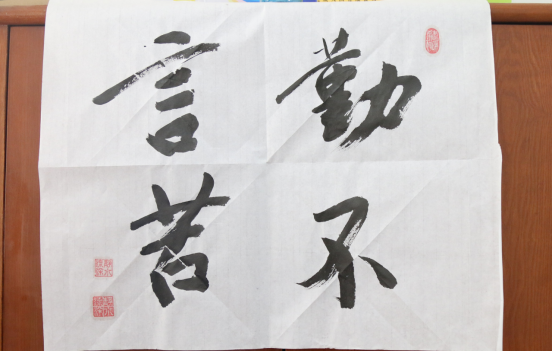 勤不
言苦